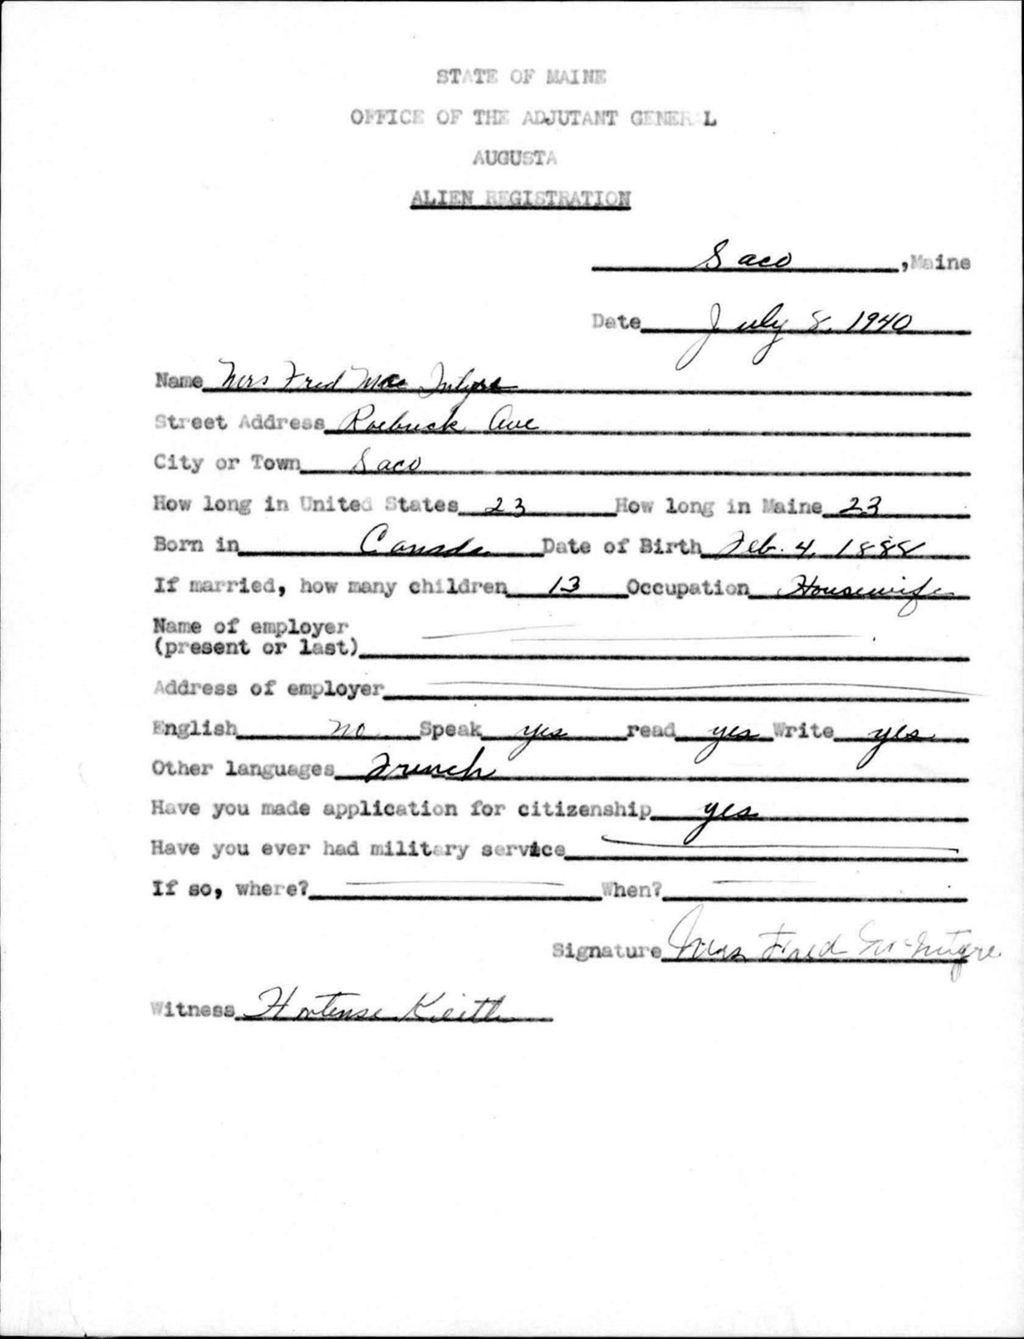 STATE OF MAINE
OFFICE OF THE ADJUTANT GENERAL
AUGUSTA
ALIEN REGISTRATION
Saco, Maine
Date July 8, 1940
Name Mrs Fred Mac Intyre
Street Address Roebuck Ave
City or Town Saco
How long in United States 23 How long in Maine 23
Born in Canada Date of Birth Feb. 4, 1888
If married, how many children 13 Occupation Housewife
Name of employer
(present or last)
Address of employer
English no Speak yes read yes Write yes
Other languages French
Have you made application for citizenship yes
Have you ever had military service
If so, where? When?
Signature Mrs Fred McIntyre
Witness Hortense Keith